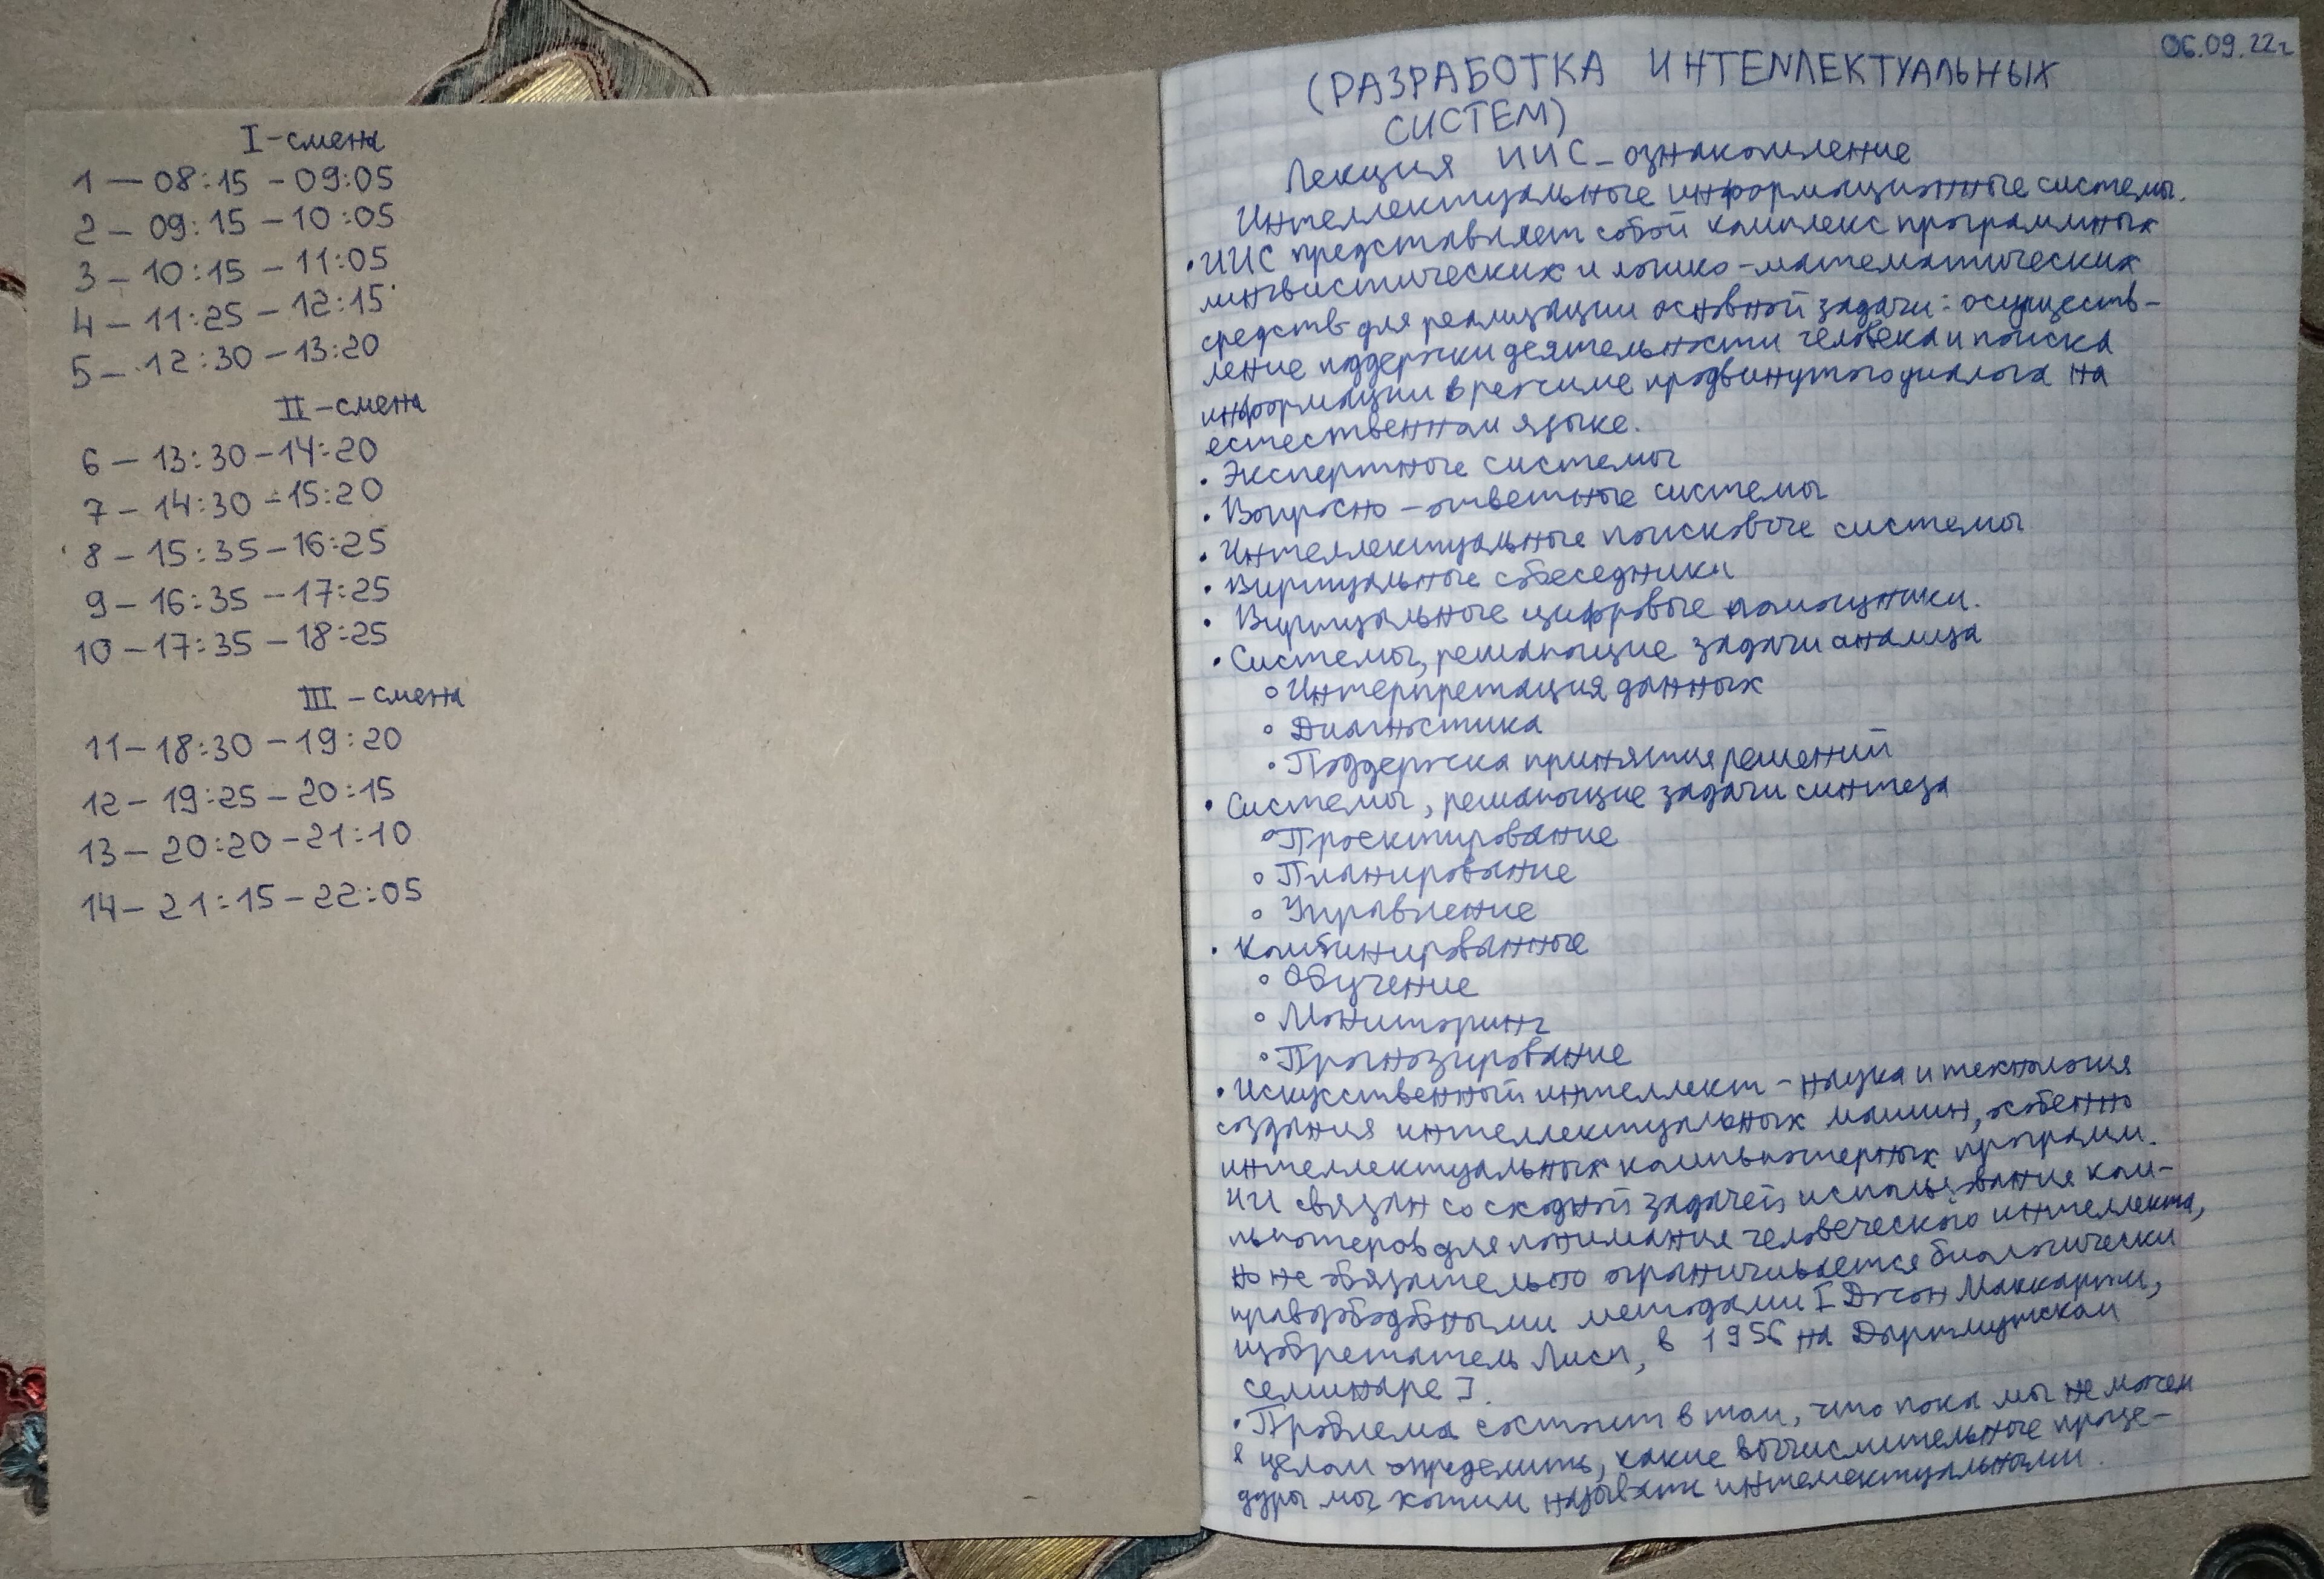 I-смена
1 — 08:15 - 09:05
2 – 09:15 – 10:05
3 – 10:15 – 11:05
4 – 11:25 – 12:15
5 – 12:30 – 13:20
II-смена
6 – 13:30 – 14:20
7 – 14:30 – 15:20
8 – 15:35 – 16:25
9 – 16:35 – 17:25
10 – 17:35 – 18:25
III – смена
11 – 18:30 – 19:20
12 – 19:25 – 20:15
13 – 20:20 – 21:10
14 – 21:15 – 22:05
06.09.22г
(РАЗРАБОТКА ИНТЕЛЛЕКТУАЛЬНЫХ
СИСТЕМ)
Лекция ИИС – ознакомление
Интеллектуальные информационные системы.
• ИИС представляет собой комплекс програмных
лингвистических и логико-математических
средств для реализации основной задачи: осуществ-
ление поддержки деятельности человека и поиска
информации в режиме продвинутого диалога на
естественном языке.
• Экспертные системы
• Вопросно – ответные системы
• Интеллектуальные поисковые системы
• Виртуальные собеседники
• Виртуальные цифровые помощники.
• Системы, решающие задачи анализа
◦ Интерпретация данных
◦ Диагностика
◦ Поддержка принятия решений
• Системы, решающие задачи синтеза
◦ Проектирование
◦ Планирование
◦ Управление
• Комбинированные
◦ Обучение
◦ Мониторинг
◦ Прогнозирование
• Искусственный интеллект – наука и технология
создания интеллектуальных машин, особенно
интеллектуальных компьютерных программ.
ИИ связан со сходной задачей использования ком-
пьютеров для понимания человеческого интеллекта,
но не обязательно ограничивается биологически
правдоподобными методами [Джон Маккарти,
изобретатель Лисп, в 1956 на Дартмутском
семинаре].
• Проблема состоит в том, что пока мы не можем
в целом определить, какие вычислительные проце-
дуры мы хотим называть интеллектуальными.